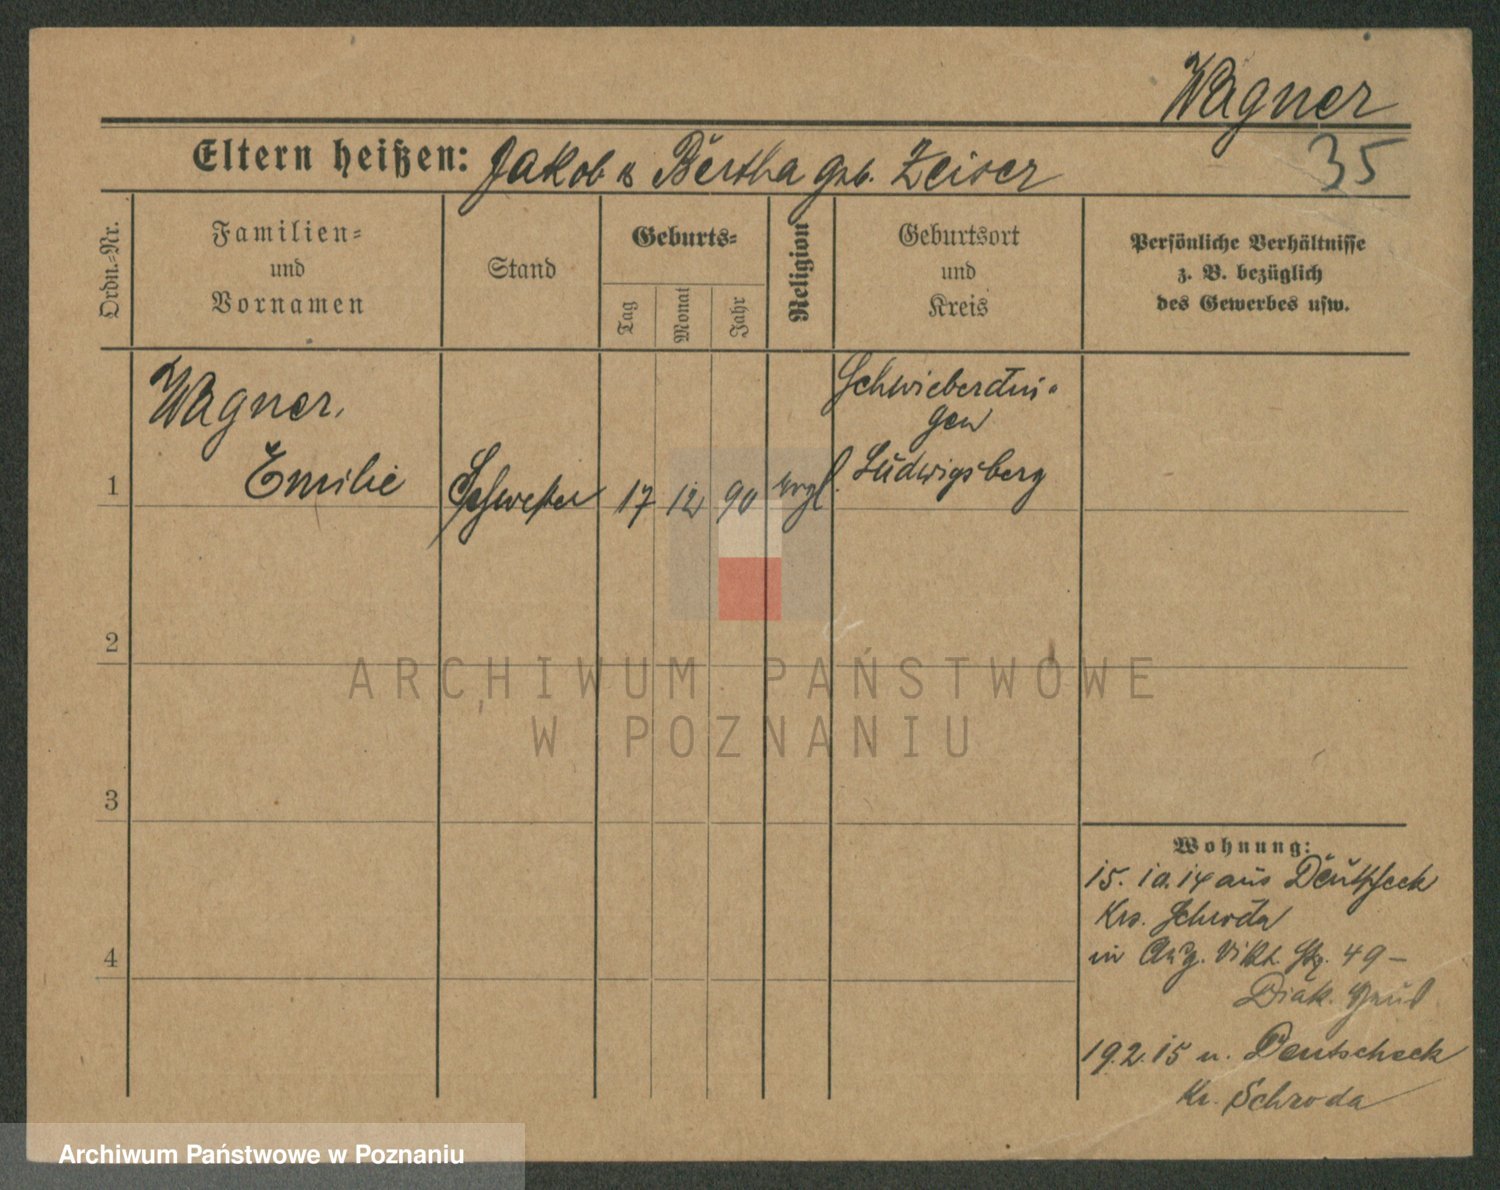 Wagner
35
Eltern heißen: Jakob u. Bertha geb. Zeiser
Ordn.-Nr.
Familien-
und
Vornamen
Stand
Geburts-
Tag
Monat
Jahr
Religion
Geburtsort
und
Kreis
Persönliche Verhältnisse
z. B. bezüglich
des Gewerbes usw.
Wagner,
Schwieberdin-
gen
1 Emilie Schwester 17 12 90 evgl. Ludwigsberg
2
3
4
ARCHIWUM PAŃSTWOWE
W POZNANIU
Wohnung:
15. 10. 14 aus Deutscheck
Krs. Schroda
in Aug. Vikt. Str. 49 –
Diak.
19.2.15 n. Deutscheck
Kr. Schroda
Archiwum Państwowe w Poznaniu